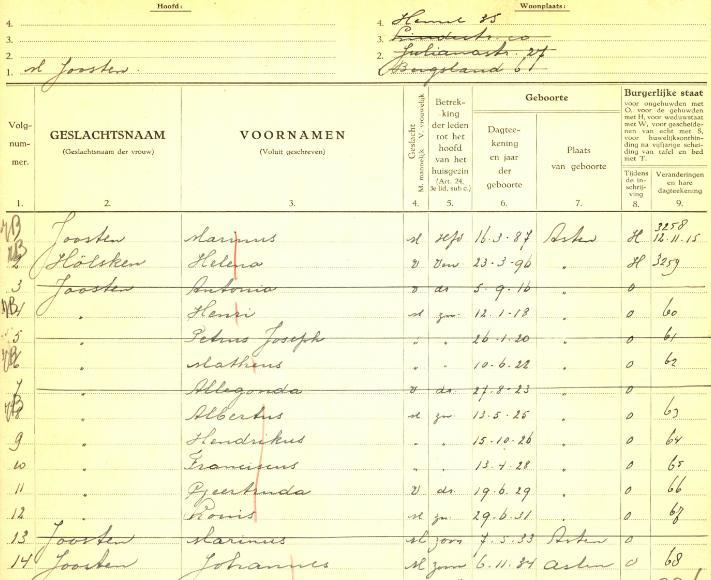 Hoofd: Woonplaats:
4. 4. Heusel 35
3. 3.
2. 2. Julianastr. 27
1. M Joosten. 1. Bergsland 61
Volgnummer. GESLACHTSNAAM (Geslachtsnaam der vrouw) VOORNAMEN (Voluit geschreven) Geslacht M. mannelijk V. vrouwelijk Betrekking der leden tot het hoofd van het huisgezin (Art. 24, 3e lid, sub c.) Geboorte Dagteekening en jaar der geboorte Plaats van geboorte Burgerlijke staat voor ongehuwden met O, voor de gehuwden met H, voor weduwstaat met W, voor gescheidenen van echt met S, voor huwelijksontbinding na vijfjarige scheiding van tafel en bed met T. Tijdens de inschrijving Veranderingen en hare dagteekening
1. 2. 3. 4. 5. 6. 7. 8. 9.
Joosten Marinus M Hfd 16.3.87 Asten H 3258 12.11.15
2 Hölsken Helena V 23-3-96 " H 3259
3 Joosten Antonia V ds 5-9-16 " O
4 " Henri M zn 12.1-18 " O 60
5 " Petrus Joseph " " 26-1.20 " O 61
6 " Matheus " " 10-6.22 " O 62
7 " Allegonda V ds. 27-8-23 " O
8 " Albertus M zn 13.5-25 " O 63
9 " Hendrikus " " 15-10-26 " O 64
10 " Franciscus " " 13-4-28 " O 65
11 " Geertruda V ds. 19.6.29 " O 66
12 " M zn. 29.6.31 " O 67
13 Joosten Marinus M zoon 7.5.33 Asten O
14 Joosten Johannes M zoon 6.11.34 Asten O 68